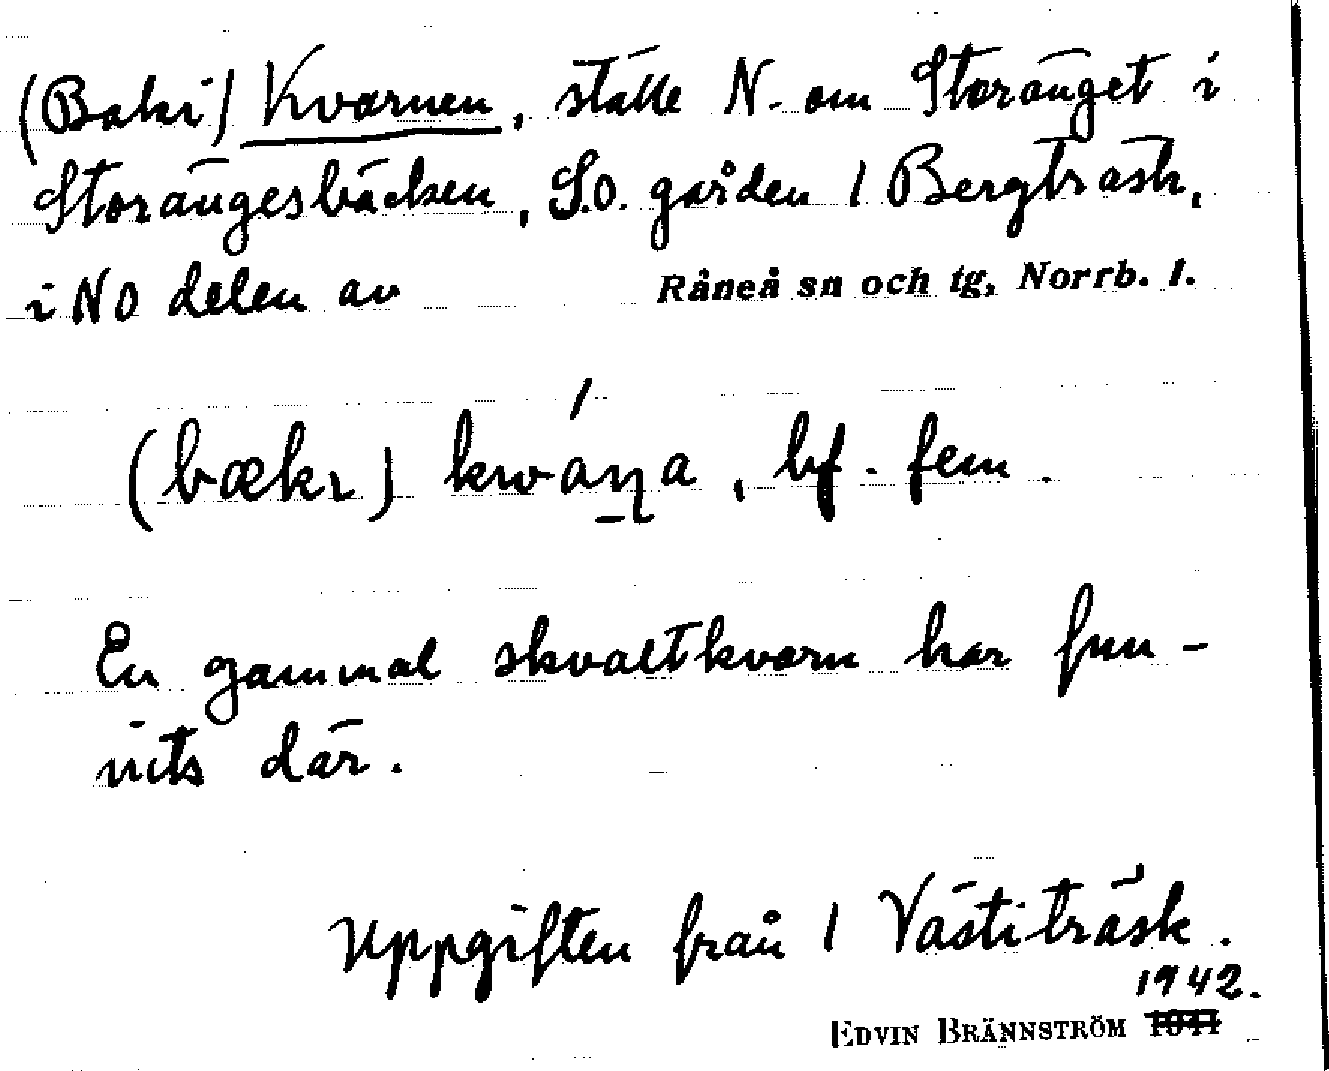 (Baki) Kvarnen, ställe N. om Storänget i
Storängesbäcken, S.O. gården 1 Bergträsk,
i NO delen av Råneå sn och tg, Norrb. l.
(bækɩ) kwáṉa, bf. fem.
En gammal skvaltkvarn har fun-
nits där.
Uppgiften från 1 Västiträsk.
1942.
EDVIN BRÄNNSTRÖM 1941